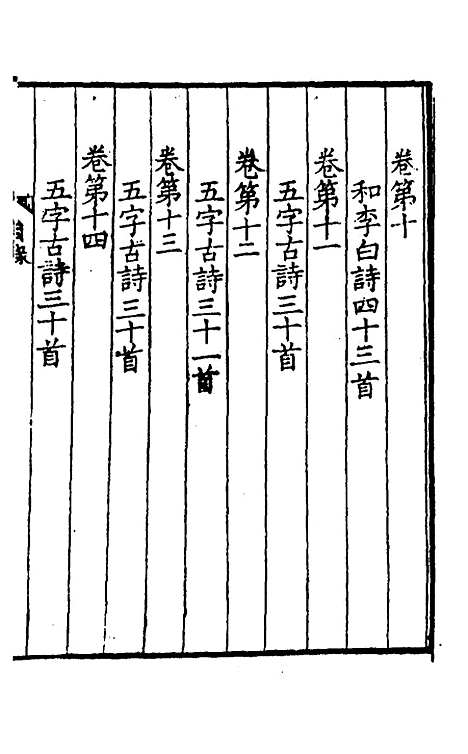 卷第十
和李白詩四十三首
卷第十一
五字古詩三十首
卷第十二
五字古詩三十一首
卷第十三
五字古詩三十首
卷第十四
五字古詩三十首
目錄